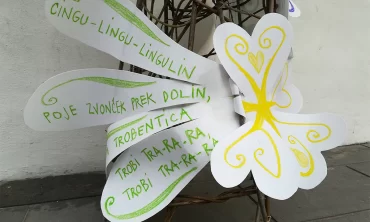 CINGU-LINGU-LINGULIN
POJE ZVONČEK PREK DOLIN,
TROBENTICA
TROBI TRA-RA-RA,
TROBI TRA-RA-RA